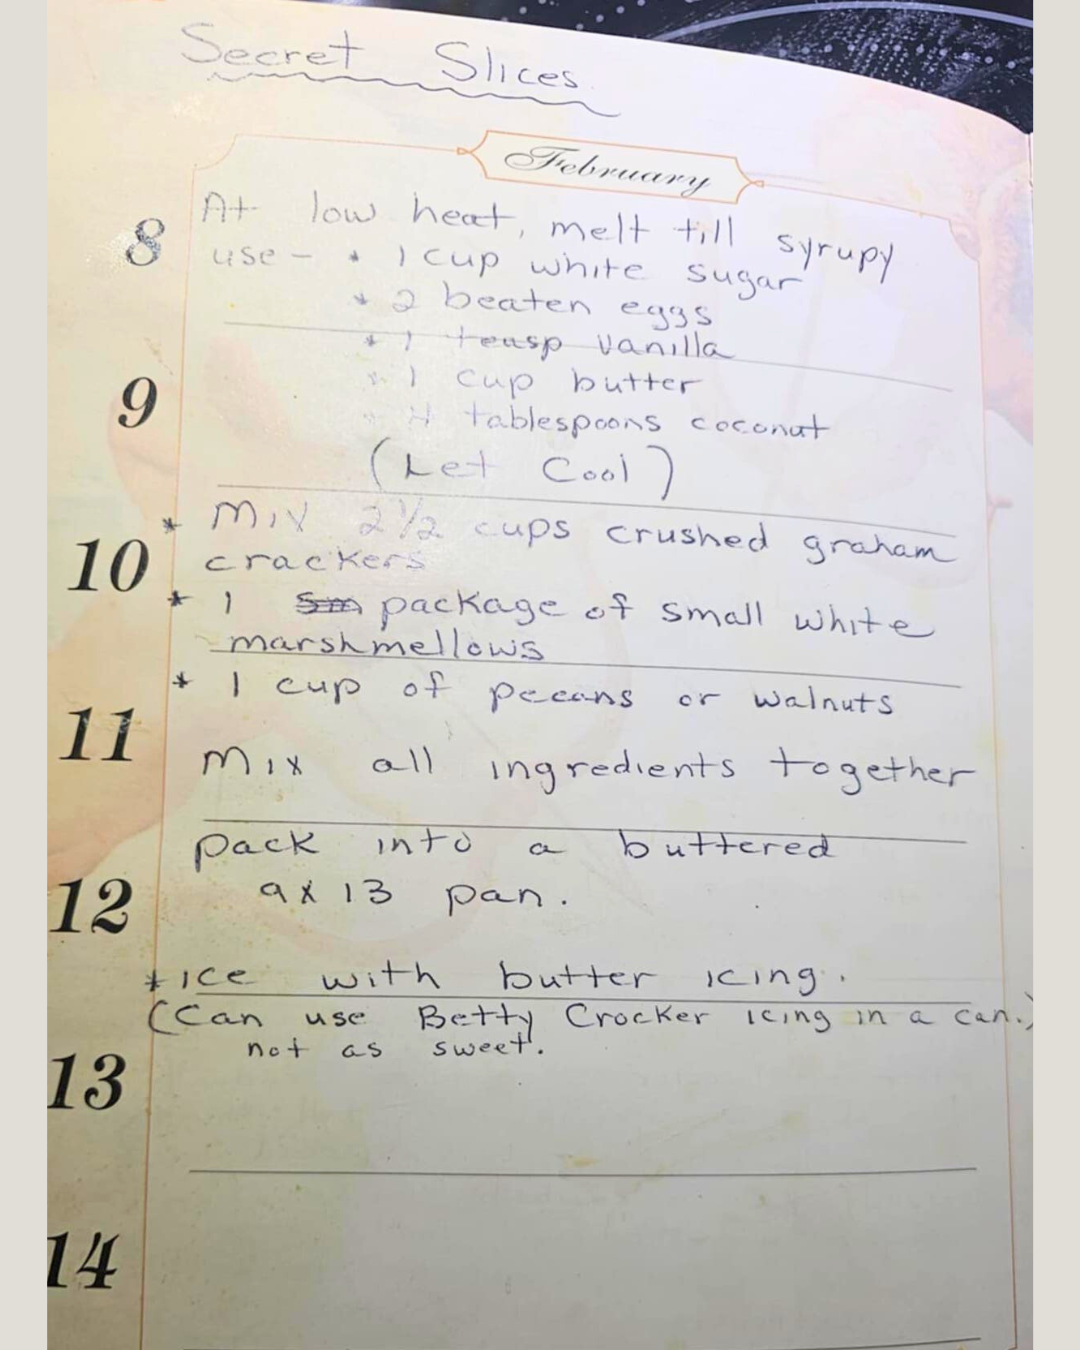 Secret Slices
February
At low heat, melt till syrupy
8
use - * 1 cup white sugar
* 2 beaten eggs
* 1 teasp vanilla
* 1 cup butter
9
* 4 tablespoons coconut
(Let Cool)
* Mix 2 1/2 cups crushed graham
crackers
10
* 1 sm package of small white
marshmellows
* 1 cup of pecans or walnuts
11
Mix all ingredients together
pack into a buttered
9 x 13 pan.
12
* ice with butter icing.
(Can use Betty Crocker icing in a can.)
not as sweet.
13
14